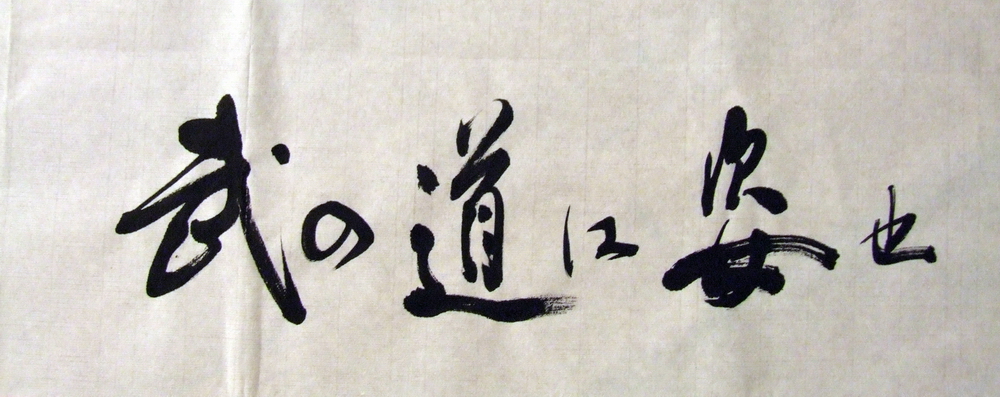 武の道に姿也